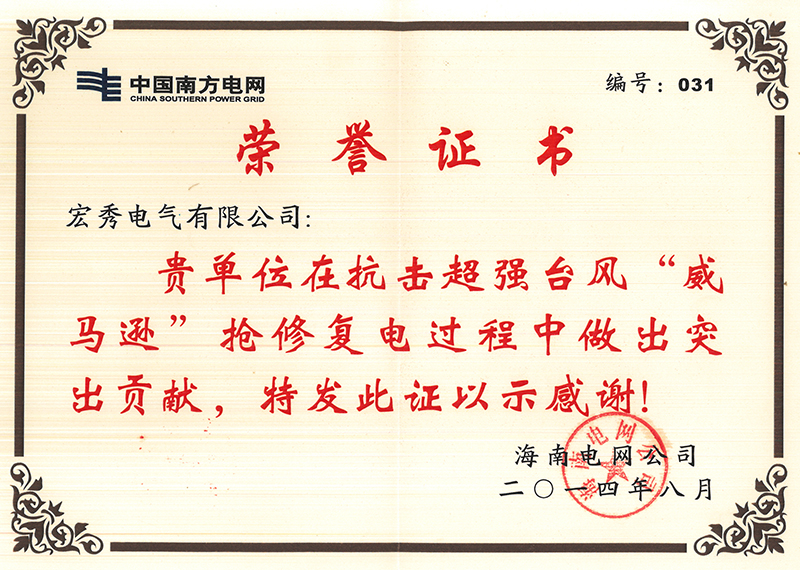 中国南方电网
CHINA SOUTHERN POWER GRID
编号：031
荣誉证书
宏秀电气有限公司：
贵单位在抗击超强台风“威
马逊”抢修复电过程中做出突
出贡献，特发此证以示感谢！
海南电网公司
二〇一四年八月
海南电网公司